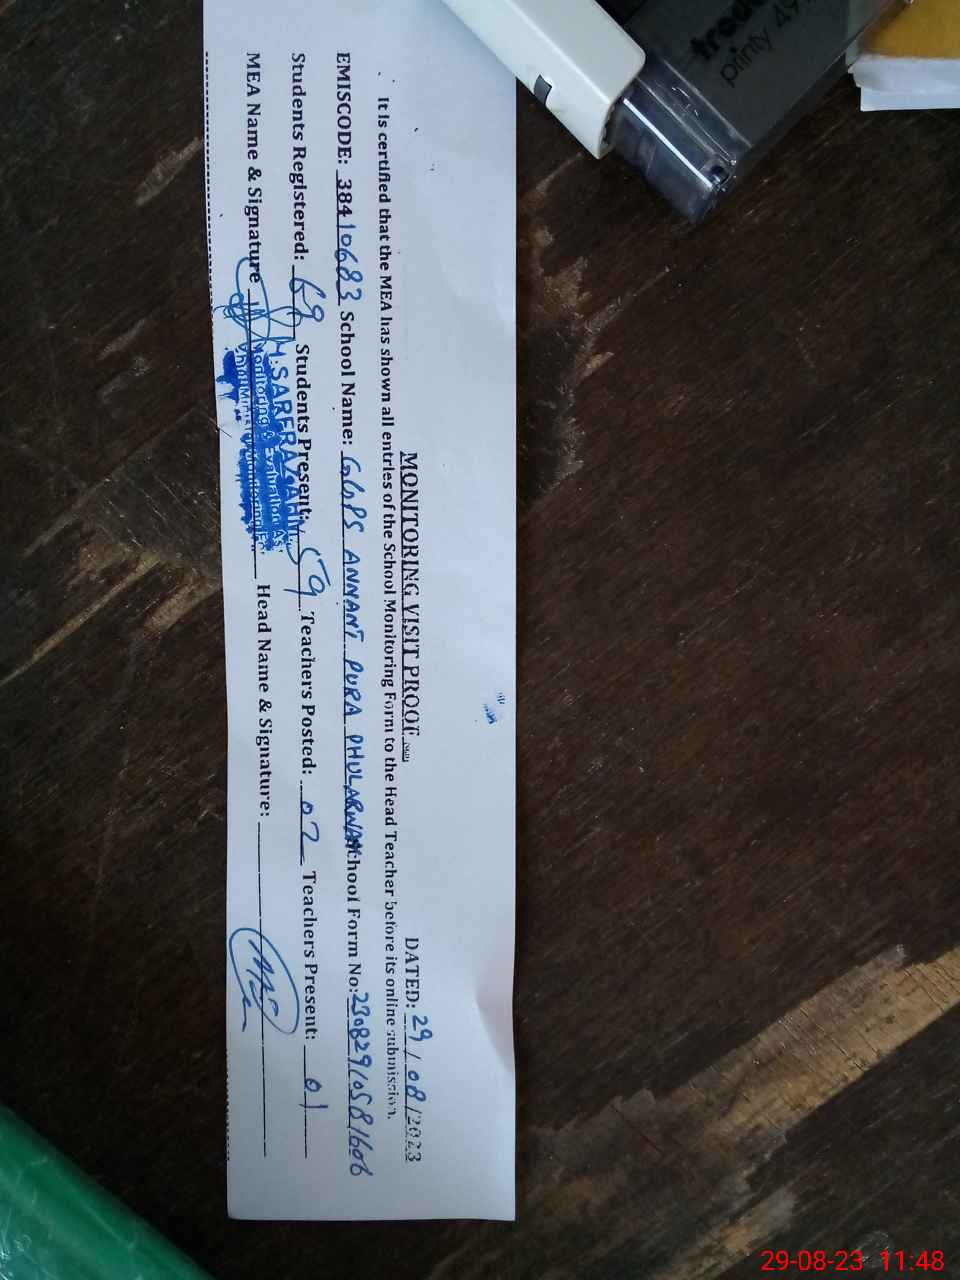 MONITORING VISIT PROOF
DATED: 29/08/2023
It is certified that the MEA has shown all entries of the School Monitoring Form to the Head Teacher before its online submission.
EMISCODE: 38410683 School Name: GGPS ANNANT PURA PHULARWAN School Form No: 23082910581606
Students Registered: 69 Students Present: 59 Teachers Posted: 02 Teachers Present: 01
MEA Name & Signature Head Name & Signature:
M.SARFRAZ
Monitoring & Evaluation As
printy
29-08-23 11:48